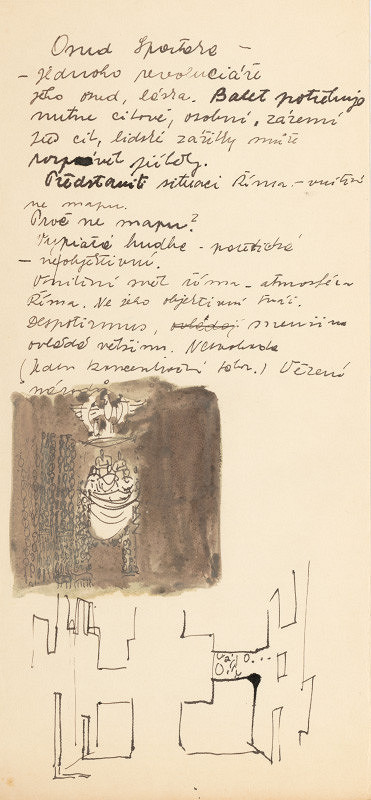 Osud Spartaka –
– Jednoho revoluciáře
jeho osud, láska. Balet potřebuje
nutně citové, osobní, zázemí
cit, lidské zážitky může
příběhy.
Představiti situaci Říma – vnitřní
ne mapu.
Proč ne mapu?
hudbě – poetické
– neobjektivní.
Vnitřní svět Říma – atmosféra
Říma. Ne jeho objektivní tvář.
Despotismus, menšina
ovládá většinu. Nesvoboda
(Jeden koncentrační tábor.) Vězení
národů